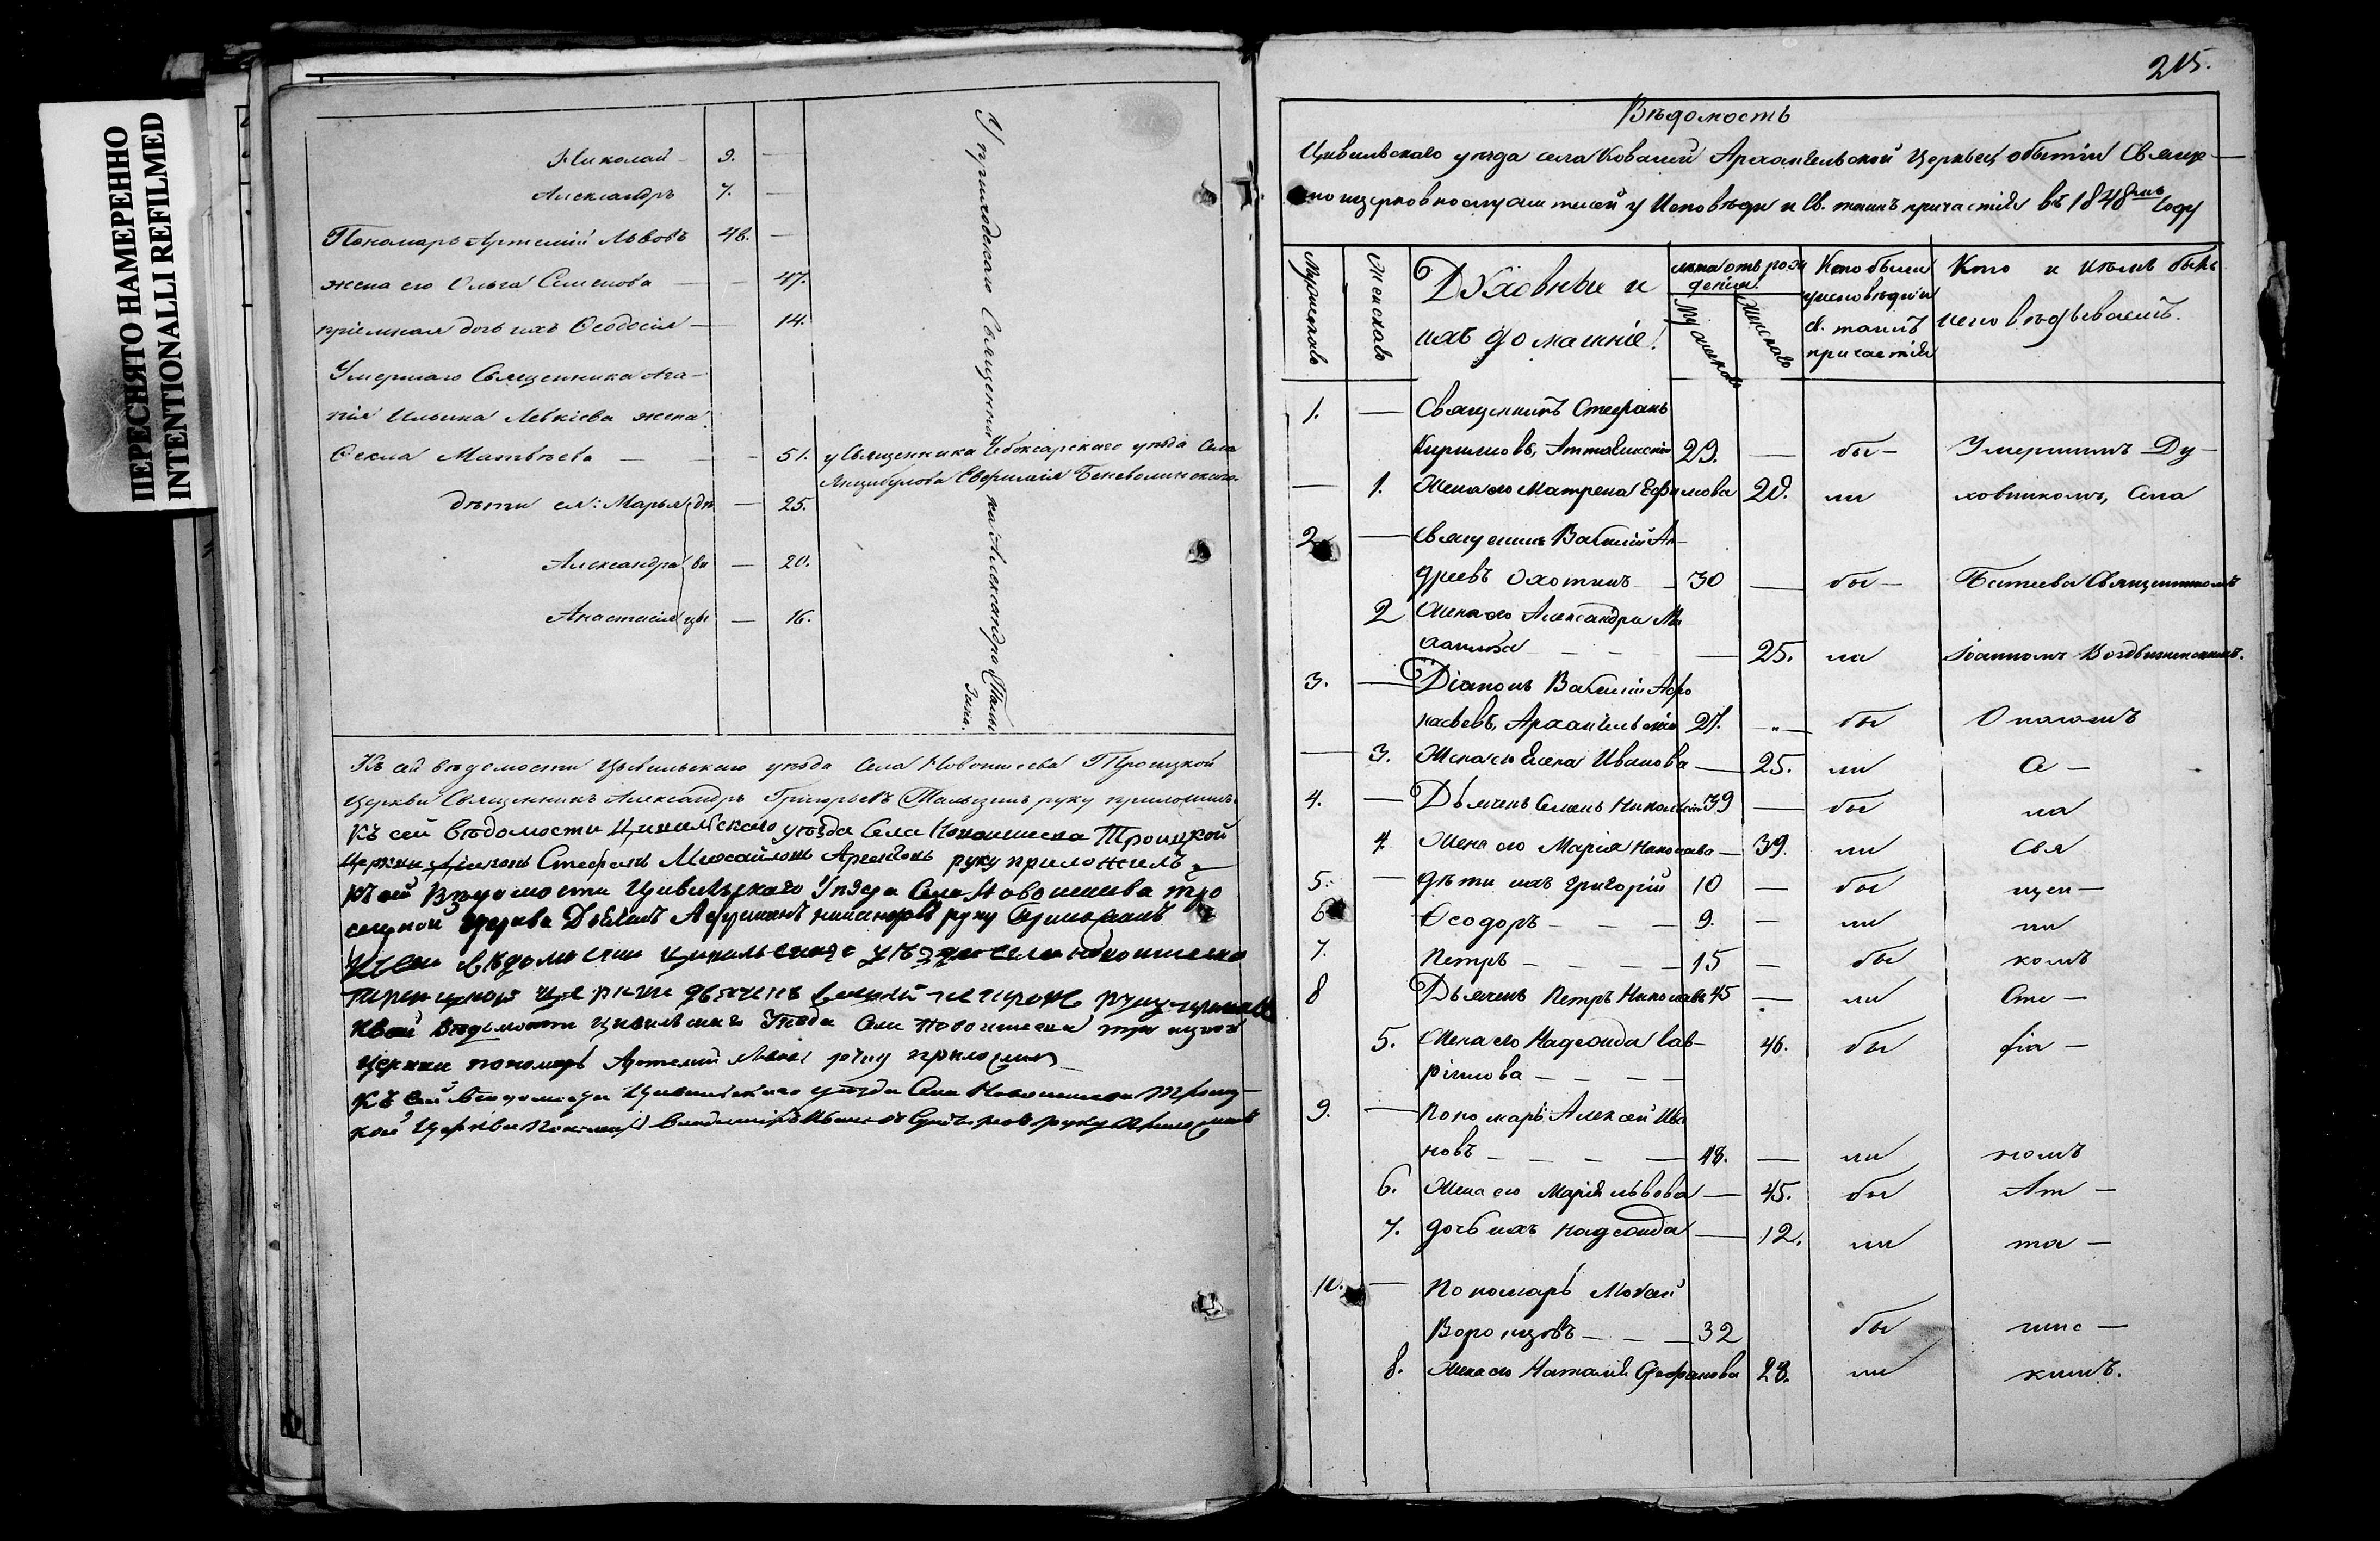 ПЕРЕСНЯТО НАМЕРЕННО
INTENTIONALLI REFILMED
Николай 9. —
Александръ 7. —
Пономарь Артемій Львовъ 48. —
жена его Ольга Семенова — — 47.
пріемная дочь ихъ Ѳеодосія — 14.
Умершаго Священника Ага-
пія Ильина Левкіева жена
Ѳекла Матвѣева — — 51. у Священника Чебоксарскаго уѣзда Села
Янцибулова Евфимія Беневоленскаго.
дѣти ея: Марья дѣ — 25.
Александра ви — 20.
Анастасія цы — 16.
У приходскаго Священника Александра
Къ сей вѣдомости Цывильскаго уѣзда Села Новоишеева Троицкой
Церкви Священникъ Александръ Григорьевъ Тальзинъ руку приложилъ.
Къ сей вѣдомости Цивильскаго уѣзда Села Новоишева Троицкой
Церкви Діаконъ Стефанъ Михайловъ руку приложилъ
Къ сей Вѣдомости Цивильскаго Уѣзда Села Новоишева Тро
ицкой Церкви руку приложилъ
Къ сей вѣдомости Цивильскаго уѣзда села Новоишева
Троицкой церкви дьячекъ руку приложилъ
Къ сей Вѣдомости Цивильскаго Уѣзда Села Новоишева Троицкой
Церкви пономарь Артемій Львовъ руку приложилъ
Къ сей Вѣдомости Цивильскаго уѣзда Села Новоишева Троиц-
кой Церкви руку приложилъ
215.
Вѣдомость
Цивильскаго уѣзда села Ковалей Архангельской Церкьви, о бытіи Свяще-
но церковнослужителей у Исповѣди и Св. таинъ причастія въ 1848мъ году
Мужескаго
Женскаго
Духовные и
ихъ домашніе.
лѣта отъ рож
денія.
Мужеска
Женскаго
Кто были
у исповѣди и
св. таинъ
причастія
Кто и кѣмъ былъ
исповѣдываемъ.
1. — Священникъ Стефанъ
Кириловъ, Аттавинскій 29. — бы — Умершимъ Ду-
— 1. Жена его Матрена Ефимова 28. ли ховникомъ, Села
2. — Священникъ Василій Ан-
дреевъ Охотинъ — 30 — бы — Батеева Священникомъ
2 Жена его Александра
— — — 25. ли Іоанномъ Воздвиженскимъ.
3. — Діаконъ Василій Аѳо
насьевъ, Архангельскій 27. — бы О налоемъ
— 3. Жена его Елена Иванова — 25. ли а —
4. — Дьячекъ Семенъ Николаевъ 39 — бы на
4. Жена его Марія Николаева — 39. ли Свя
5. — Дѣти ихъ Григорій 10 — бы щен —
6 Ѳеодоръ — — — 9. — ли ни
7. Петръ — — — — 15 — бы комъ
8 Дьячекъ Петръ Николаевъ 45 — ли Сте —
5. Жена его Надежда Гав- 46. бы фа —
рилова — — — —
9. — Пономарь Алексѣй Ива
новъ — — — — 48. — ли номъ
6. Жена его Марія Львова — 45. бы Ат —
7. дочь ихъ Надежда — 12. ли та —
10. — Пономарь Мокей
Воронцовъ — — — 32 бы
8. Жена его Наталія Стефанова 28. ли кимъ.